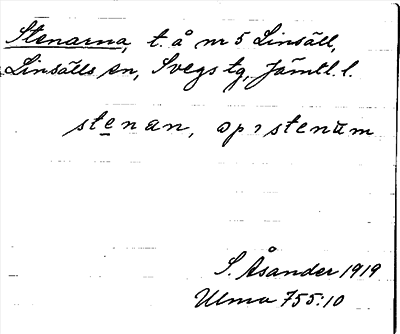 Stenarna, t. å nr 5 Linsäll,
Linsälls sn, Svegs tg, Jämtl. l.
stenan, opɔ stenum
S. Åsander 1919
Ulma 755:10